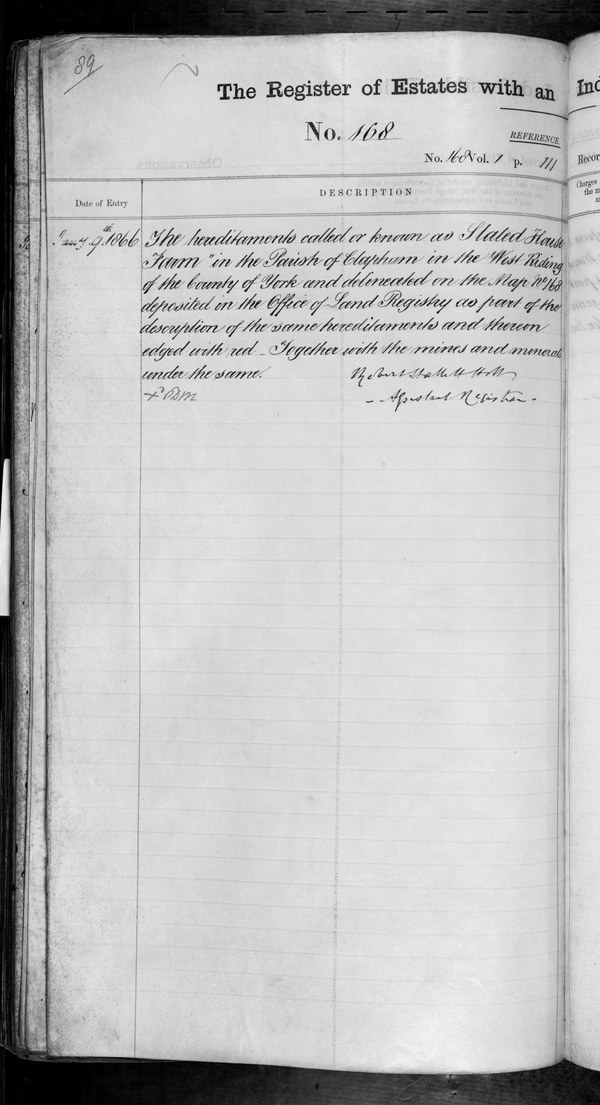 89
The Register of Estates with an
Ind
No. 168
REFERENCE.
No. 168 Vol. 1 p. 111
Recor
DESCRIPTION
Date of Entry
Jany. 9th 1866
The hereditaments called or known as Slated House
Farm" in the Parish of Clapham in the West Riding
of the County of York and delineated on the Map No. 168
deposited in the Office of Land Registry as part of the
description of the same hereditaments and thereon
edged with red - Together with the mines and minerals
under the same.
Robert Hallett Holt
- Assistant Registrar -